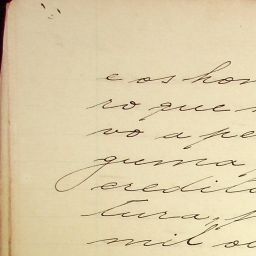 e os hon
ro que
vo a pe
guma
eredita
tura, p
mil oi